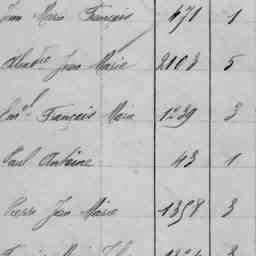 Jean Marie François 471 1
Alexandre Jean Marie 2103 5
Eml François Marie 1239 3
Paul Antoine 43 1
Pierre Jean Marie 1358 3